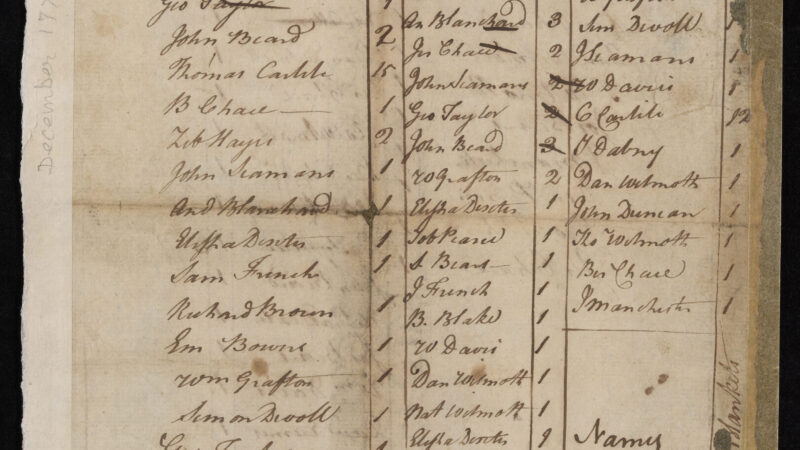 Geo Taylor 1
John Beard 2
Thomas Carlile 15
B Chace 1
Zeb Hayes 2
John Seamans 1
And Blanchard 1
Elisha Dexter 1
Sam French 1
Richard Brown 1
Em Bowns 1
Wm Grafton 1
Simon Devoll 1
An Blanchard 3
Jos Chace 2
John Seamans 2
Geo Taylor 2
John Beard 3
W Grafton 2
Elisha Dexter 1
Job Pearce 1
S Bears 1
J French 1
B. Blake 1
W Davis 1
Dan Wilmoth 1
Nat Wilmoth 1
Elisha Dexter 9
Sim Devoll 1
J Seamans 1
W Davis 1
C Carlile 12
T Dabny 1
Dan Wilmoth 1
John Duncan 1
Tho Wilmoth 1
Ben Chace 1
J Manchester 1
Names
Blankets
December 177